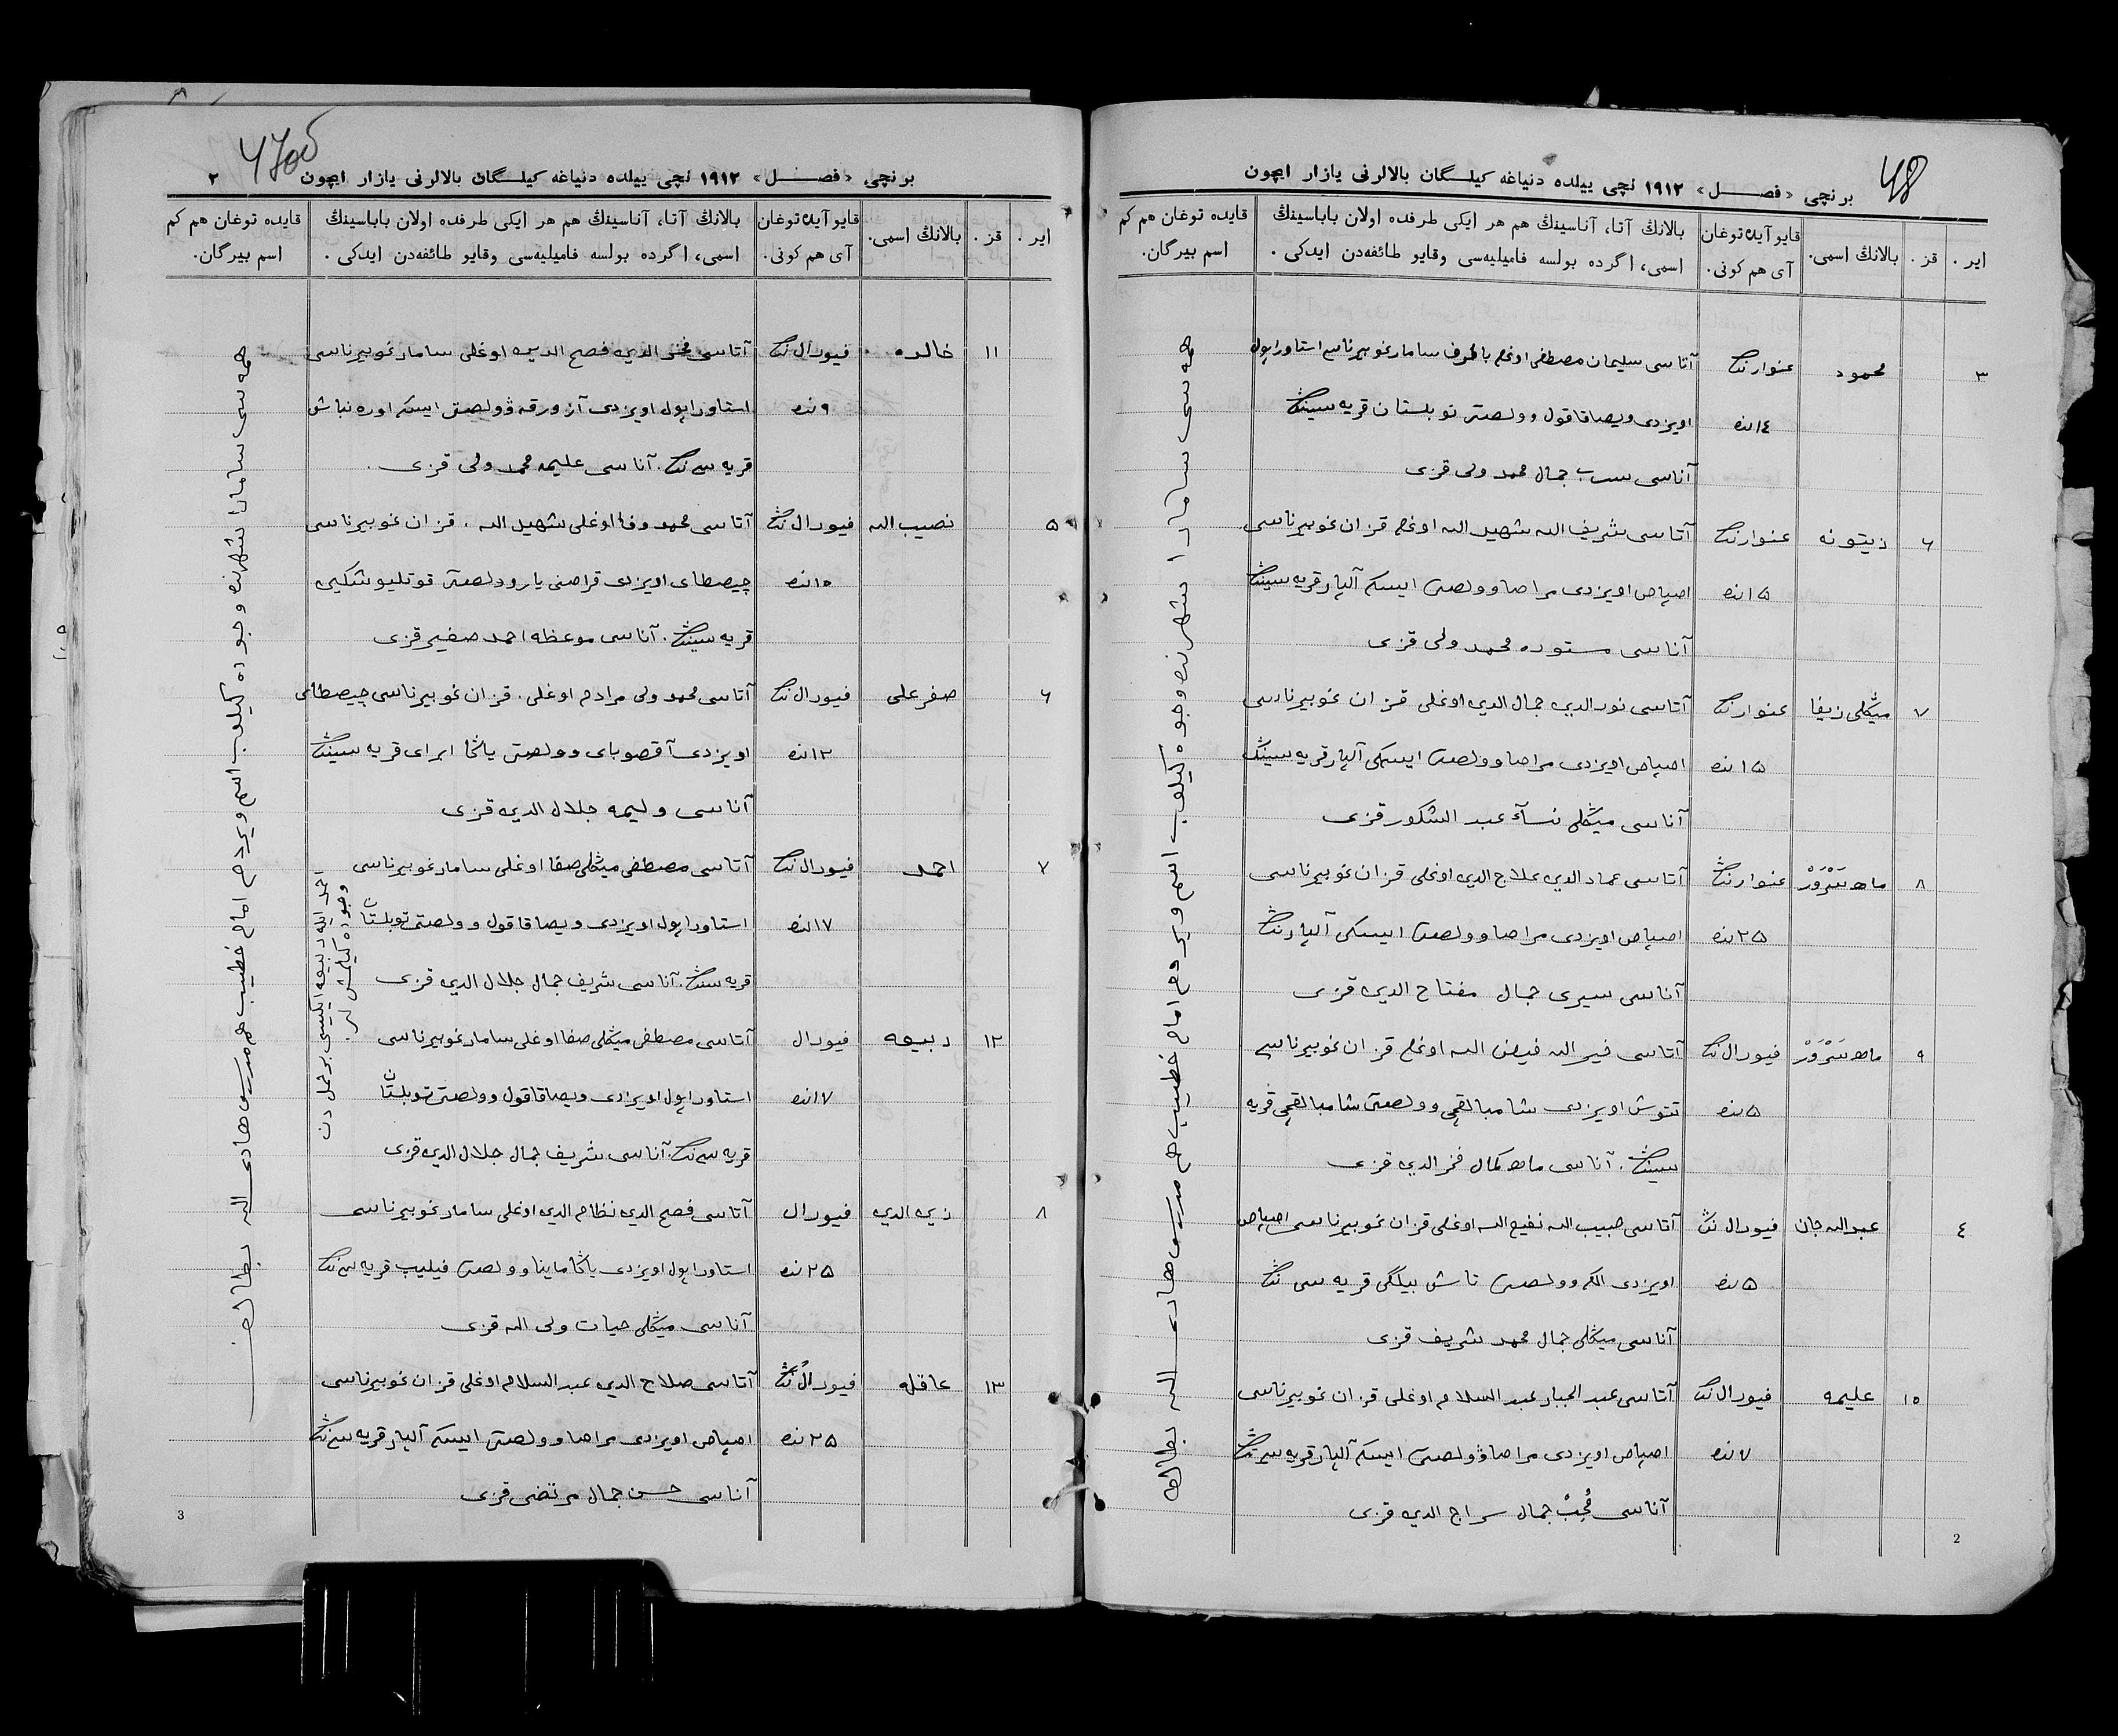 48
برنچی «فصل» ١٩١٢ نچی ییلده دنیاغه کیلگان بالالرنی یازار ایچون
ایر .
قز .
بالانڭ اسمی.
قایو آیده توغان
آی هم کونی.
بالانڭ آتا، آناسینڭ هم هر ایکی طرفده اولان باباسینڭ
اسمی، اگرده بولسه فامیلیه‌سی وقایو طائفه‌دن ایدکی .
قایده توغان هم کم
اسم بیرگان.
٣ محمود عنوارنڭ آتاسی سلیمان مصطفی اوغلی سامار غوبیرناسی استاوراپول
١٤نده اویزدی ویصاقاقول وولصتی نوبلستان قریه سینڭ
آناسی جمال محمد ولی قزی
٦ زیتونه عنوارنڭ آتاسی شریف الله شهید الله اوغلی قزان غوبیرناسی
١٥نده اصپاص اویزدی مراصا وولصتی ایسکی آلپار قریه سینڭ
آناسی مستوره محمد ولی قزی
٧ میڭلی زیفا عنوارنڭ آتاسی نورالدین جمال الدین اوغلی قزان غوبیرناسی
١٥نده اصپاص اویزدی مراصا وولصتی ایسکی آلپار قریه سینڭ
آناسی میڭلی نسآء عبد الشکور قزی
٨ ماه سَرْوَرْ عنوارنڭ آتاسی عماد الدین علاج الدین اوغلی قزان غوبیرناسی
٢٥نده اصپاص اویزدی مراصا وولصتی ایسکی آلپارنڭ
آناسی سیری جمال مفتاح الدین قزی
٩ ماه سَرْوَرْ فیورال نڭ آتاسی خیر الله فیض الله اوغلی قزان غوبیرناسی
٥نده تتوش اویزدی شامبالقچی وولصتی شامبالقچی قریه
سینڭ . آناسی ماه کمال فخر الدین قزی
٤ عبدالله جان فیورال نڭ آتاسی حبیب الله نفیع الله اوغلی قزان غوبیرناسی اصپاص
٥نده اویزدی وولصتی تاش بیلگی قریه سی نڭ
آناسی میڭلی جمال محمد شریف قزی
١٠ علیمه فیورال نڭ آتاسی عبد الجبار عبد السلام اوغلی قزان غوبیرناسی
٧نده اصپاص اویزدی مراصا وولصتی ایسکی آلپار قریه سی نڭ
آناسی جمال سراج الدین قزی
همه سی سامارا شهرنده وجوده کیلوب اسم ویردم امام خطیب هم مدرس هادی الله
2
برنچی «فصل» ١٩١٢ نچی ییلده دنیاغه کیلگان بالالرنی یازار ایچون
٢
ایر .
قز .
بالانڭ اسمی.
قایو آیده توغان
آی هم کونی.
بالانڭ آتا، آناسینڭ هم هر ایکی طرفده اولان باباسینڭ
اسمی، اگرده بولسه فامیلیه‌سی وقایو طائفه‌دن ایدکی .
قایده توغان هم کم
اسم بیرگان.
١١ خالده فیورال نڭ آتاسی فصح الدین اوغلی سامار غوبیرناسی
٩نده استاوراپول اویزدی وولصتی ایسکی
قریه سی نڭ . آناسی علیمه محمد ولی قزی .
٥ نصیب الله فیورال نڭ آتاسی محمد وفا اوغلی شهید الله . قزان غوبیرناسی
١٠نده چیصطای اویزدی وولصتی
قریه سینڭ . آناسی موعظه احمد صفیر قزی
٦ صفر علی فیورال نڭ آتاسی محمد ولی مرادم اوغلی . قزان غوبیرناسی چیصطای
١٢نده اویزدی آقصوبای وولصتی یاڭا ابرای قریه سینڭ
آناسی ولیمه جلال الدین قزی
٧ احمد فیورال نڭ آتاسی مصطفی میڭلی صفا اوغلی سامار غوبیرناسی
١٧نده استاوراپول اویزدی ویصاقاقول وولصتی نوبلستان
قریه سینڭ . آناسی شریف جمال جلال الدین قزی
١٢ ربیعه فیورال آتاسی مصطفی میڭلی صفا اوغلی سامار غوبیرناسی
١٧نده استاوراپول اویزدی ویصاقاقول وولصتی نوبلستان
قریه سی نڭ . آناسی شریف جمال جلال الدین قزی
احمد ایله ربیعه ایکیسی بر حمل دن
وجوده کیلمش لر .
٨ زین الدین فیورال آتاسی فصح الدین نظام الدین اوغلی سامار غوبیرناسی
٢٥نده استاوراپول اویزدی یاڭا ماینا وولصتی فیلیپ قریه سی نڭ
آناسی میڭلی حیات ولی الله قزی
١٣ عاقله فیورال نڭ آتاسی صلاح الدین عبد السلام اوغلی قزان غوبیرناسی
٢٥نده اصپاص اویزدی مراصا وولصتی ایسکی آلپار قریه سی نڭ
آناسی حسن جمال مرتضی قزی
همه سی سامارا شهرنده وجوده کیلوب اسم ویردم امام خطیب هم مدرس هادی الله
3